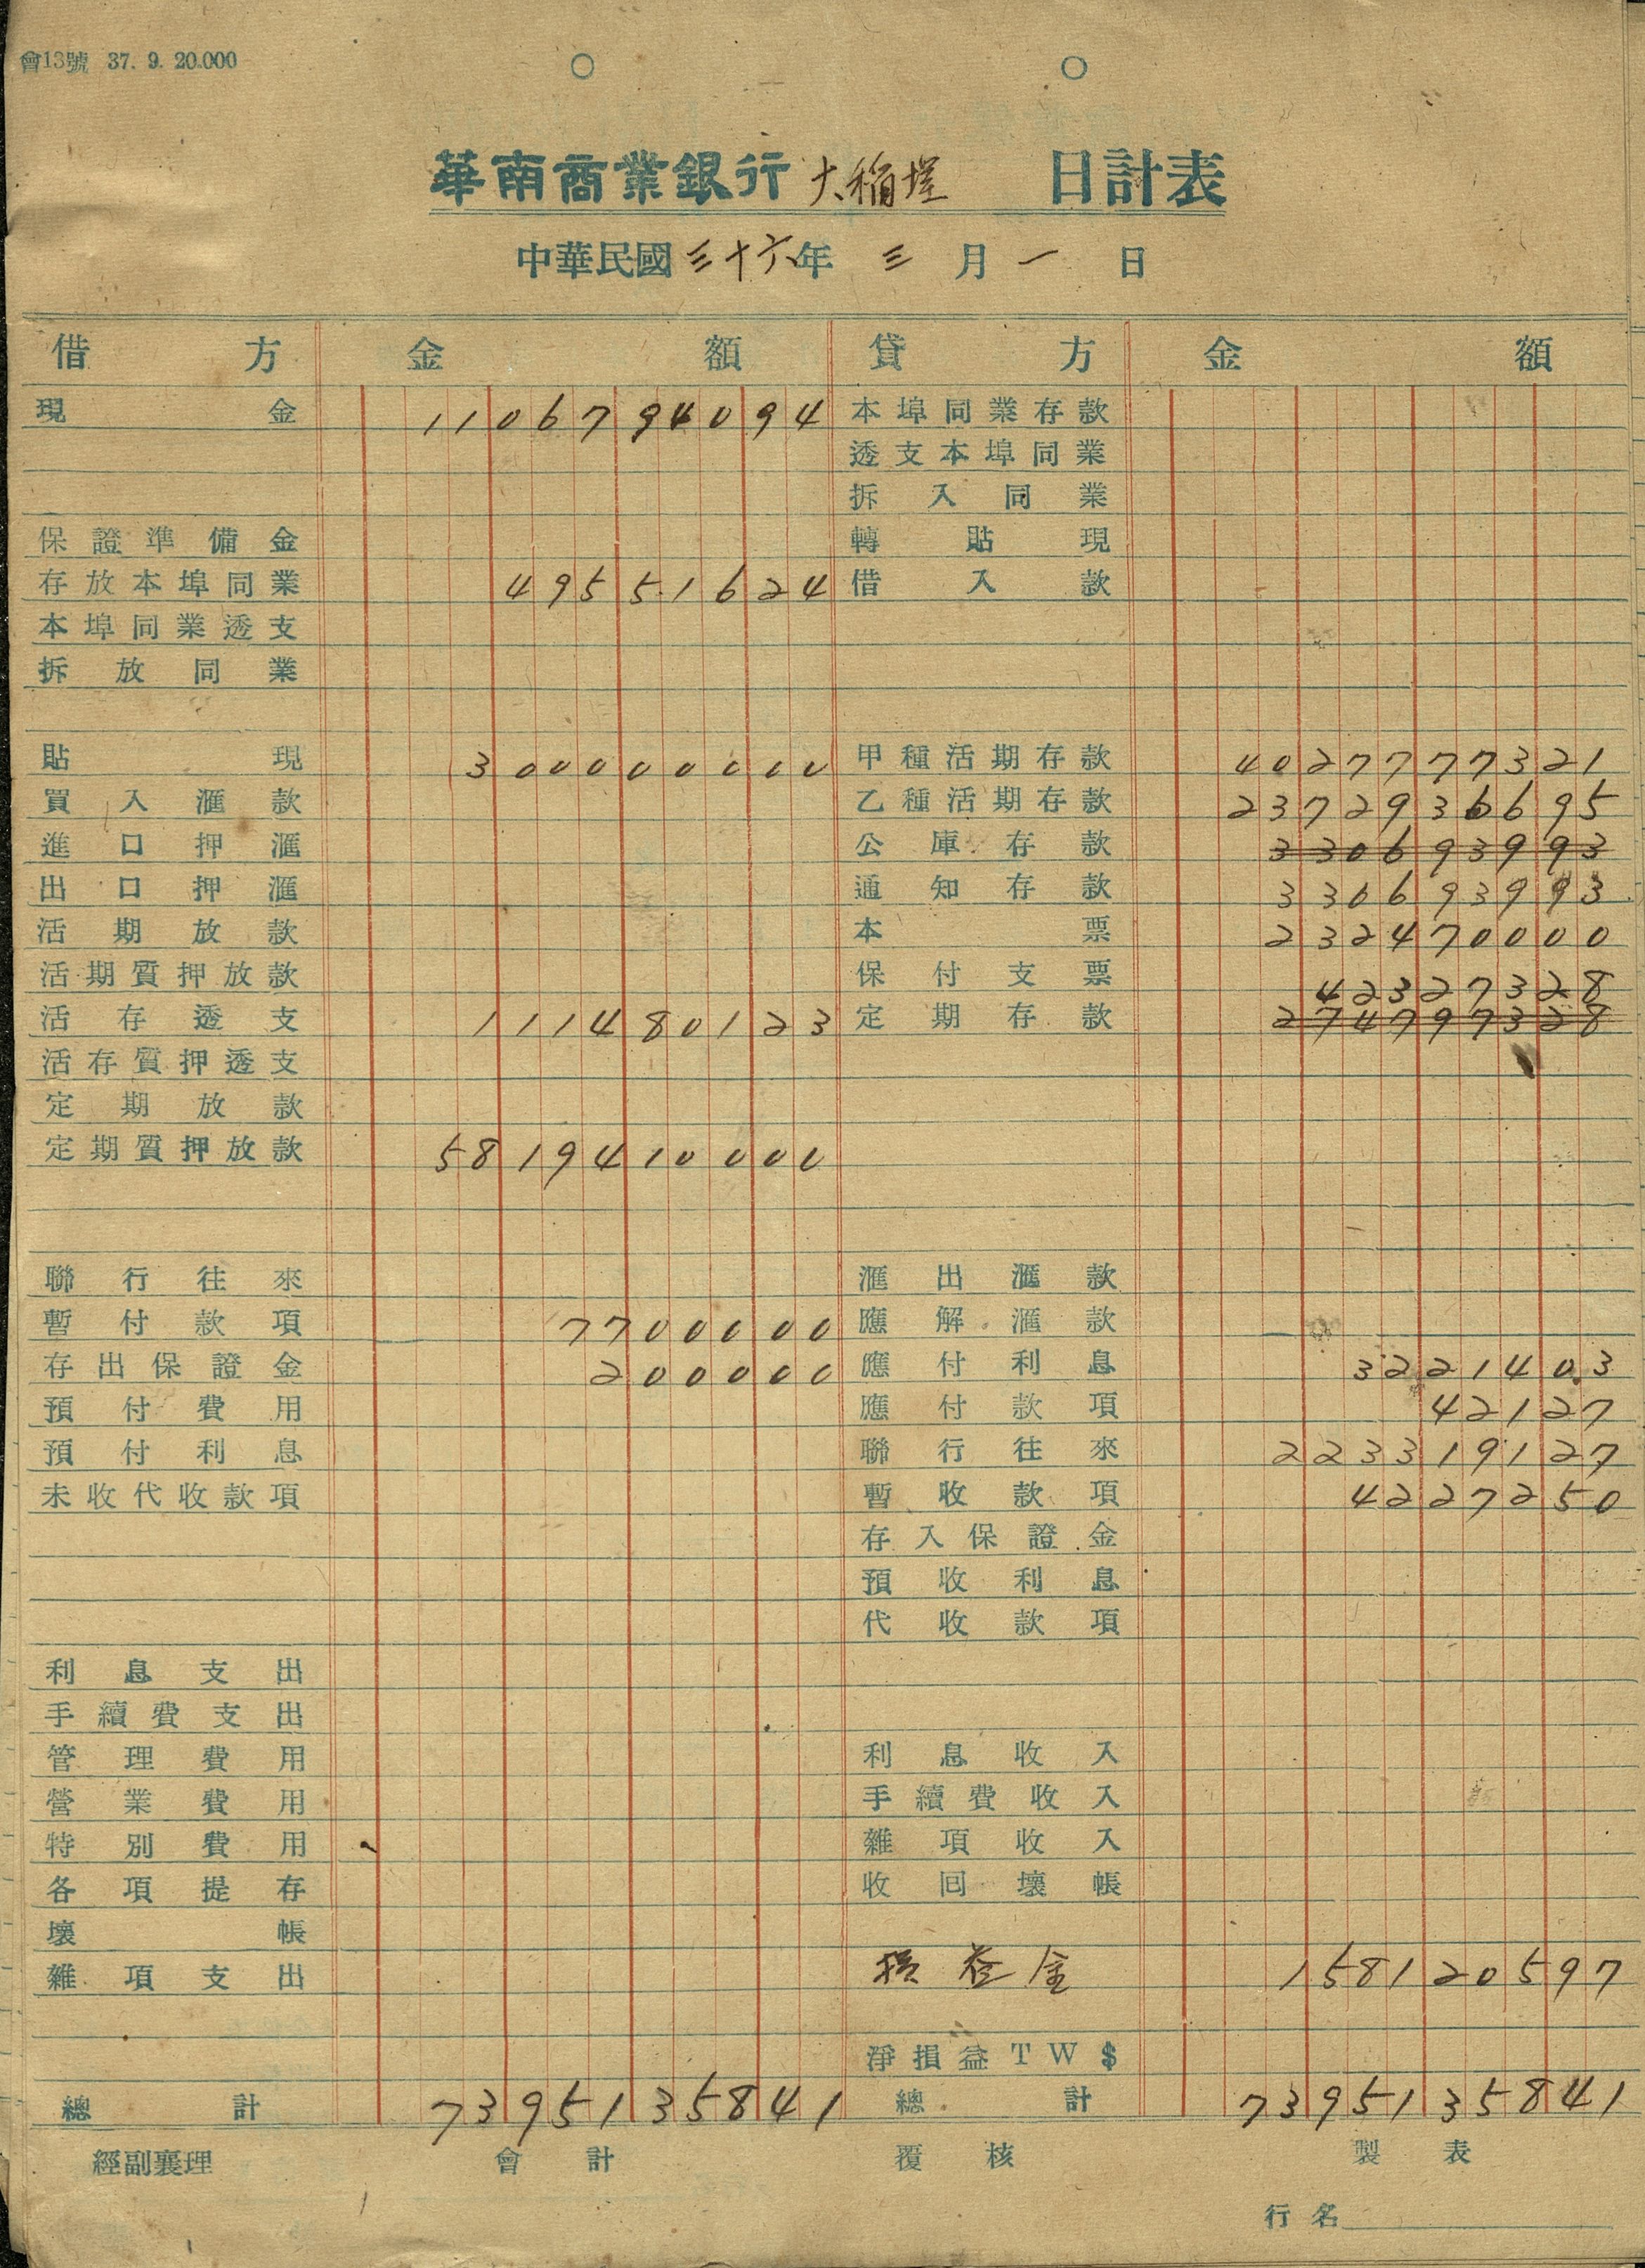 會13號 37. 9. 20.000
華南商業銀行 大稻埕 日計表
中華民國三十六年 三月一日
借方 金額 貸方 金額
現金 1106794094 本埠同業存款
透支本埠同業
拆入同業
保證準備金 轉貼現
存放本埠同業 49551624 借入款
本埠同業透支
拆放同業
貼現 300000000 甲種活期存款 4027777321
買入滙款 乙種活期存款 2372936695
進口押滙 公庫存款 330693993
出口押滙 通知存款 330693993
活期放款 本票 232470000
活期質押放款 保付支票 42327328
活存透支 111480123 定期存款 274797328
活存質押透支
定期放款
定期質押放款 5819410000
聯行往來 滙出滙款
暫付款項 7700000 應解滙款
存出保證金 200000 應付利息 3221403
預付費用 應付款項 42127
預付利息 聯行往來 223319127
未收代收款項 暫收款項 4227250
存入保證金
預收利息
代收款項
利息支出
手續費支出
管理費用 利息收入
營業費用 手續費收入
特別費用 雜項收入
各項提存 收回壞帳
壞帳
雜項支出 損益金 158120597
淨損益TW$
總計 7395135841 總計 7395135841
經副襄理 會計 覆核 製表
行名